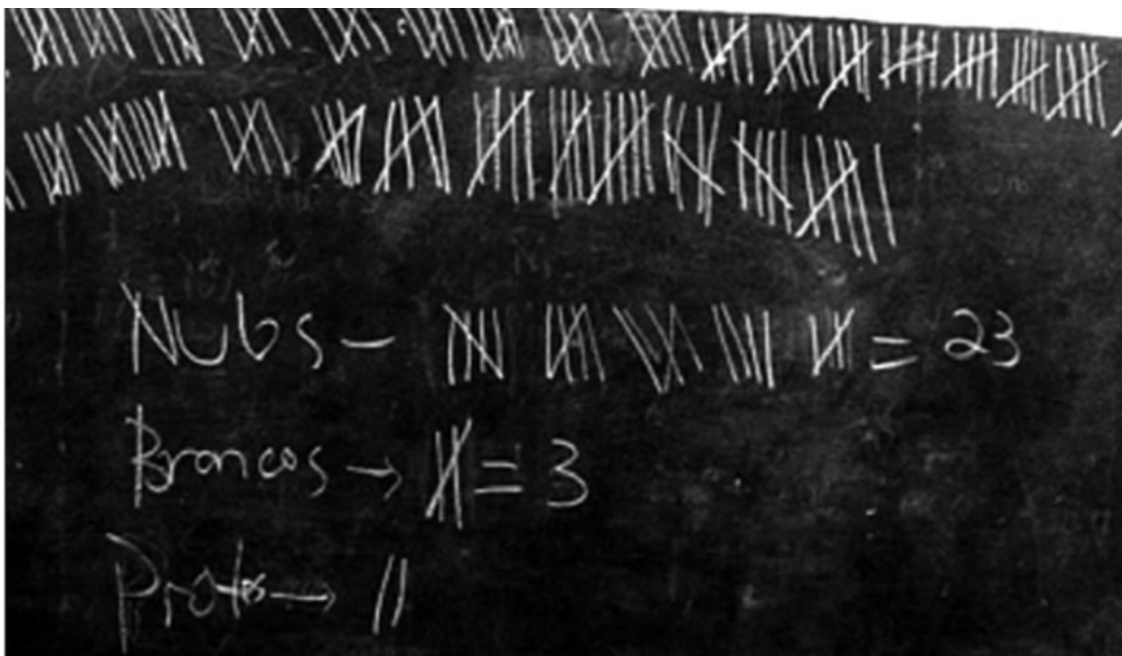 Nubs - = 23
Broncos → = 3
Proto → ||